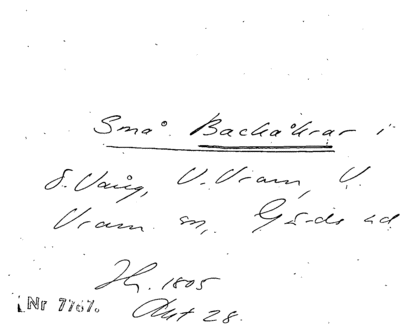 Små Backåkrar i
S. Vång, V. Vram, V.
Vram sn, Gärds hd
Hs. 1805
Akt 28.
Nr 7767.